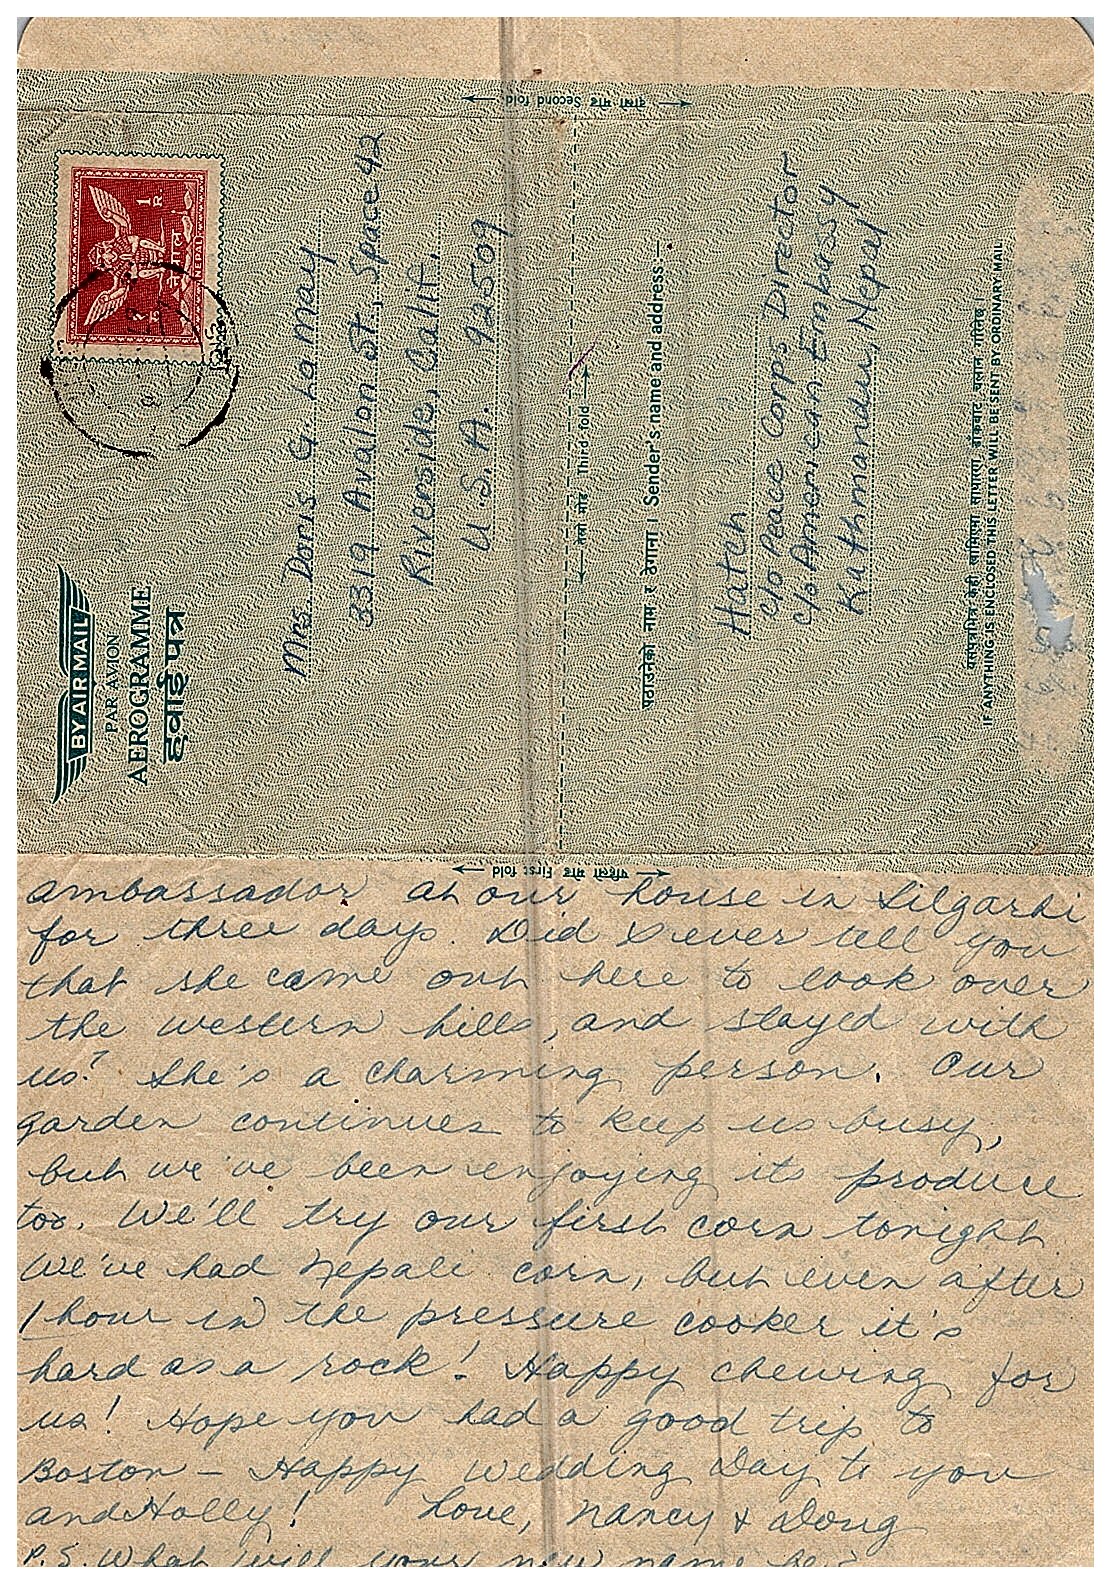 ← बायाँ मोड Second fold →
1 R.
नेपाल
NEPAL
१ रु.
BY AIR MAIL
PAR AVION
AEROGRAMME
हवाईपत्र
Mrs. Doris G. LaMay
3319 Avalon St., Space 42
Riverside, Calif.
U.S.A. 92509
← तेस्रो मोड Third fold →
पठाउनेको नाम र ठेगाना । Sender's name and address :—
Hatch
c/o Peace Corps Director
c/o American Embassy
Kathmandu, Nepal
यसपत्रभित्र केही खामिएमा साधारण डाँकबाट चलान गरिनेछ ।
IF ANYTHING IS ENCLOSED THIS LETTER WILL BE SENT BY ORDINARY MAIL
← पहिलो मोड First fold →
ambassador at our house in Silgarhi
for three days. Did I ever tell you
that she came out here to look over
the western hills, and stayed with
us? She's a charming person. Our
garden continues to keep us busy,
but we've been enjoying its produce
too. We'll try our first corn tonight.
We've had Nepali corn, but even after
1 hour in the pressure cooker it's
hard as a rock! Happy chewing for
us! Hope you had a good trip to
Boston – Happy Wedding Day to you
and Holly! Love, Nancy & Doug
P.S. What will your new name be?